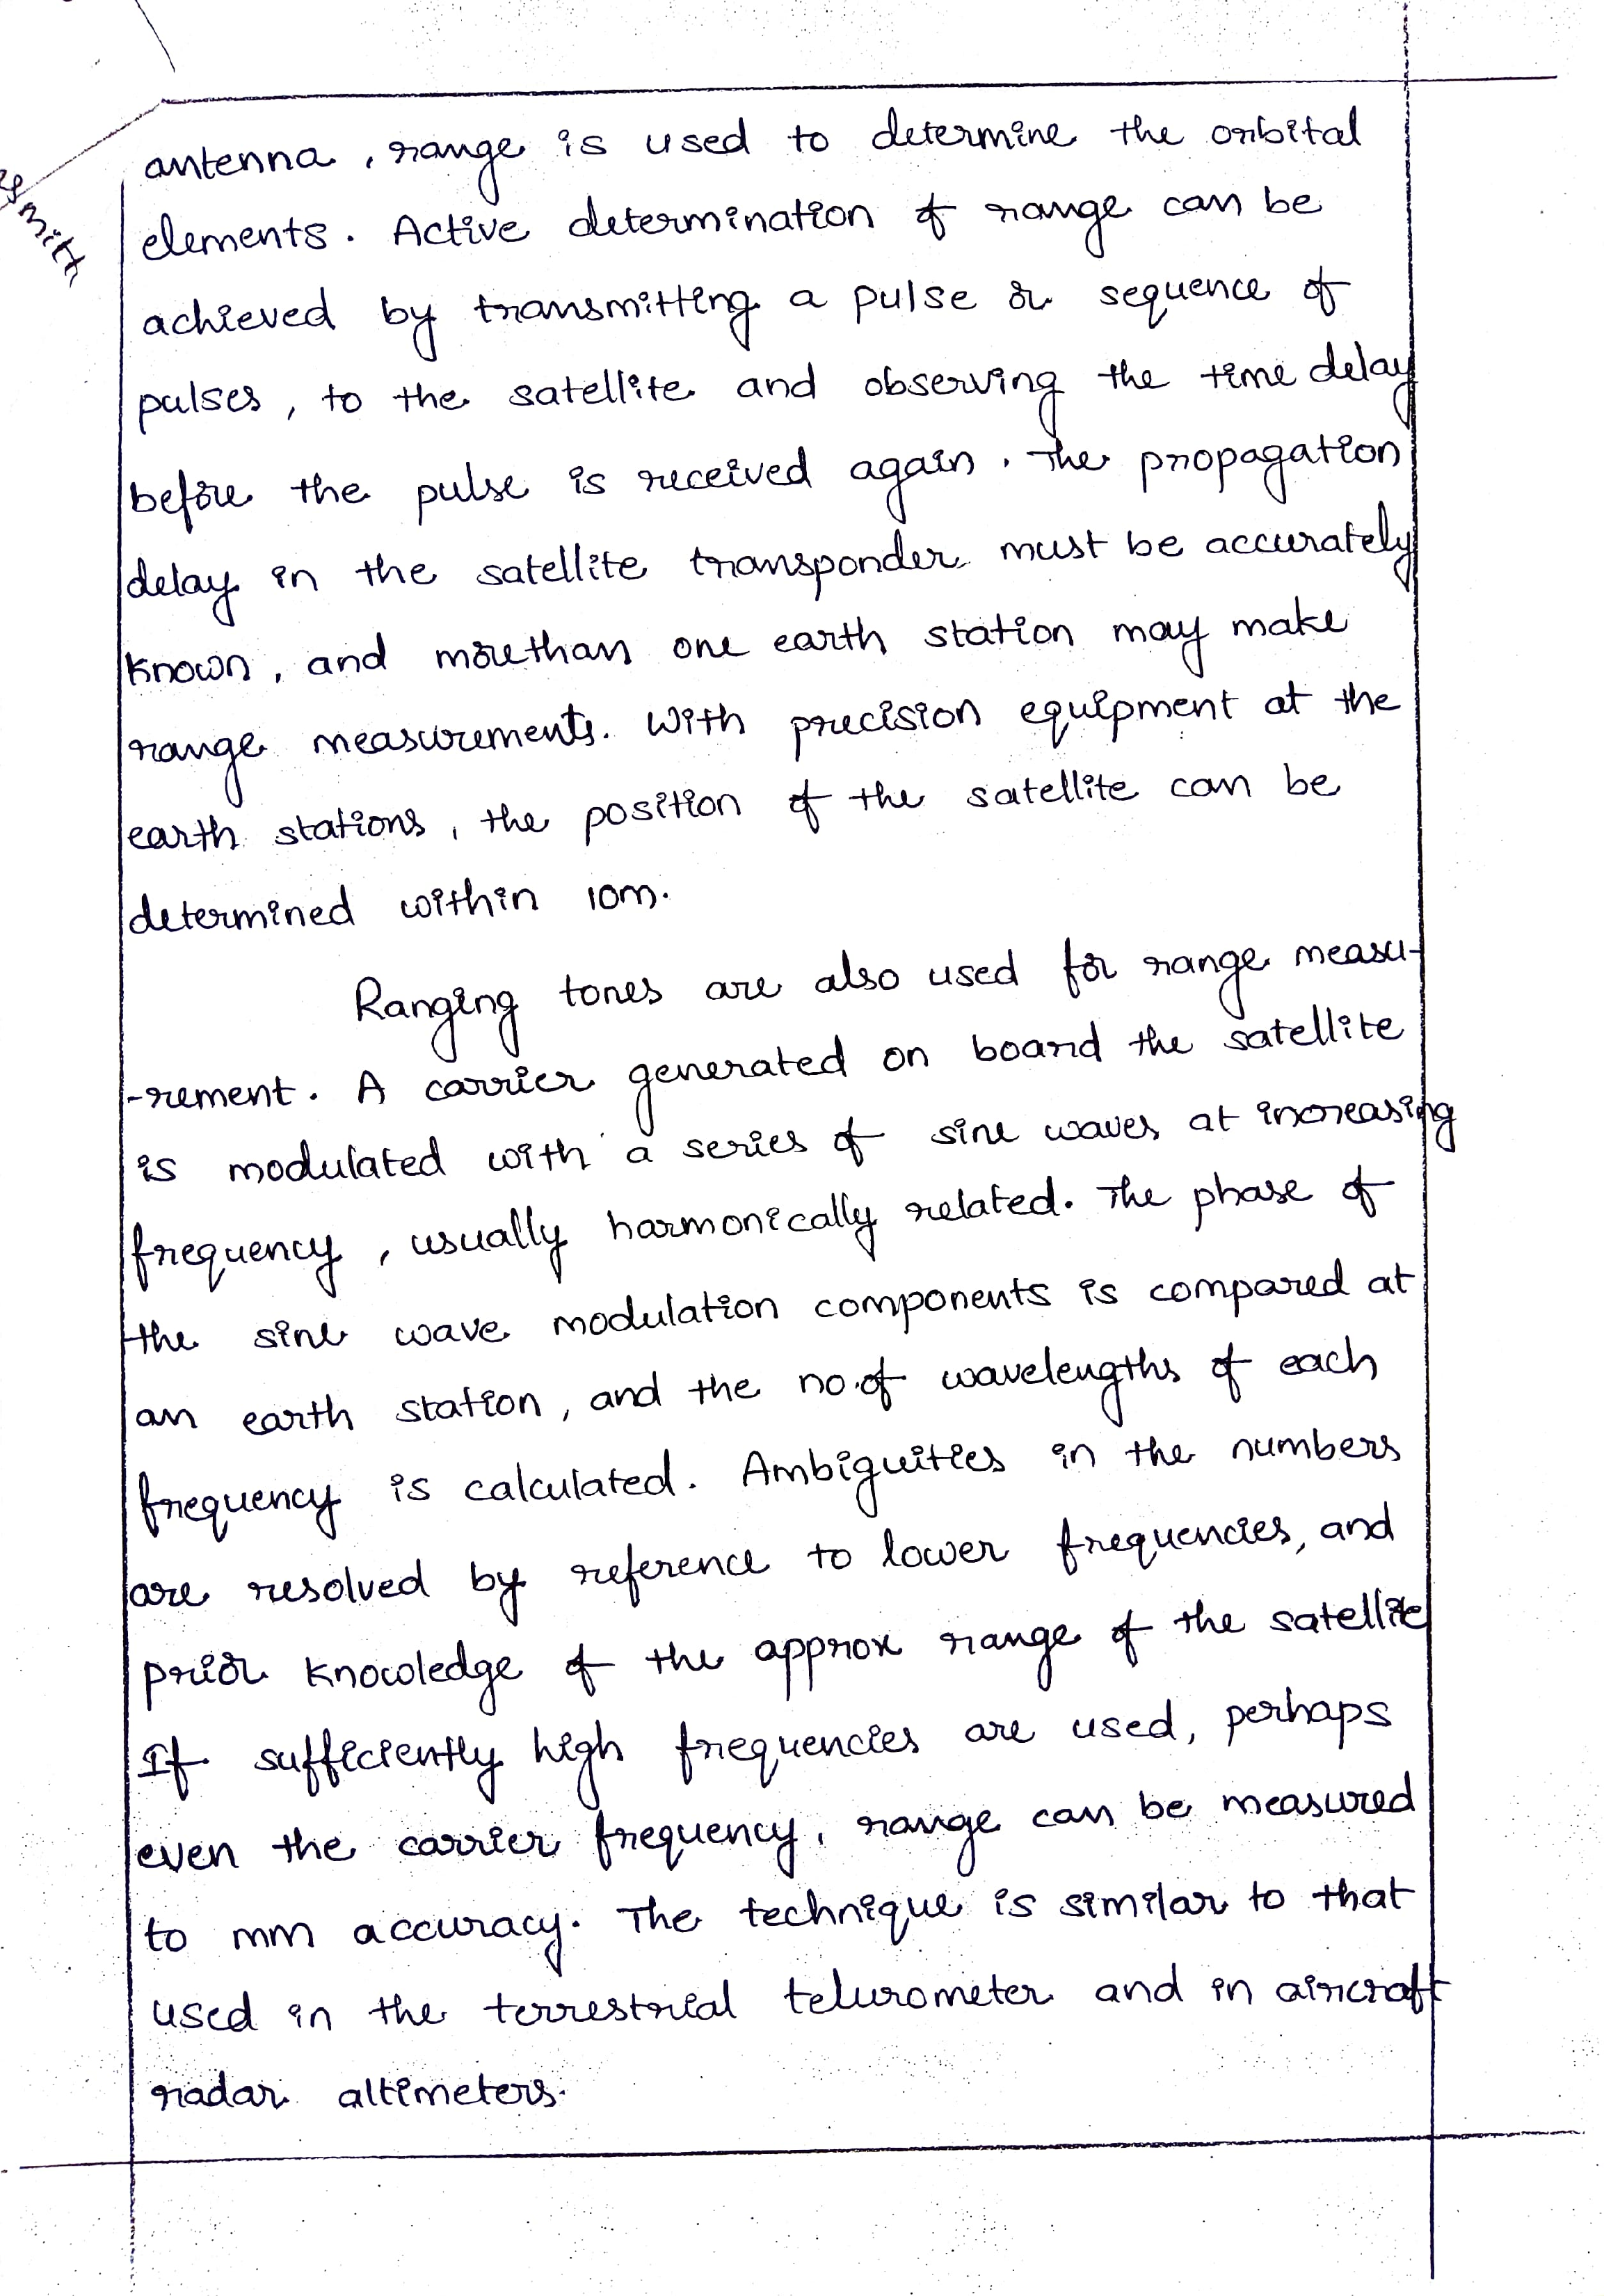 antenna, range is used to determine the orbital
elements. Active determination of range can be
achieved by transmitting a pulse or sequence of
pulses, to the satellite and observing the time delay
before the pulse is received again. The propagation
delay in the satellite transponder must be accurately
known, and morethan one earth station may make
range measurements. With precision equipment at the
earth stations, the position of the satellite can be
determined within 10m.
Ranging tones are also used for range measu-
-rement. A carrier generated on board the satellite
is modulated with a series of sine waves at increasing
frequency, usually harmonically related. The phase of
the sine wave modulation components is compared at
an earth station, and the no.of wavelengths of each
frequency is calculated. Ambiguities in the numbers
are resolved by reference to lower frequencies, and
prior knowledge of the approx range of the satellite
If sufficiently high frequencies are used, perhaps
even the carrier frequency, range can be measured
to mm accuracy. The technique is similar to that
used in the terrestrial telurometer and in aircraft
radar altimeters.